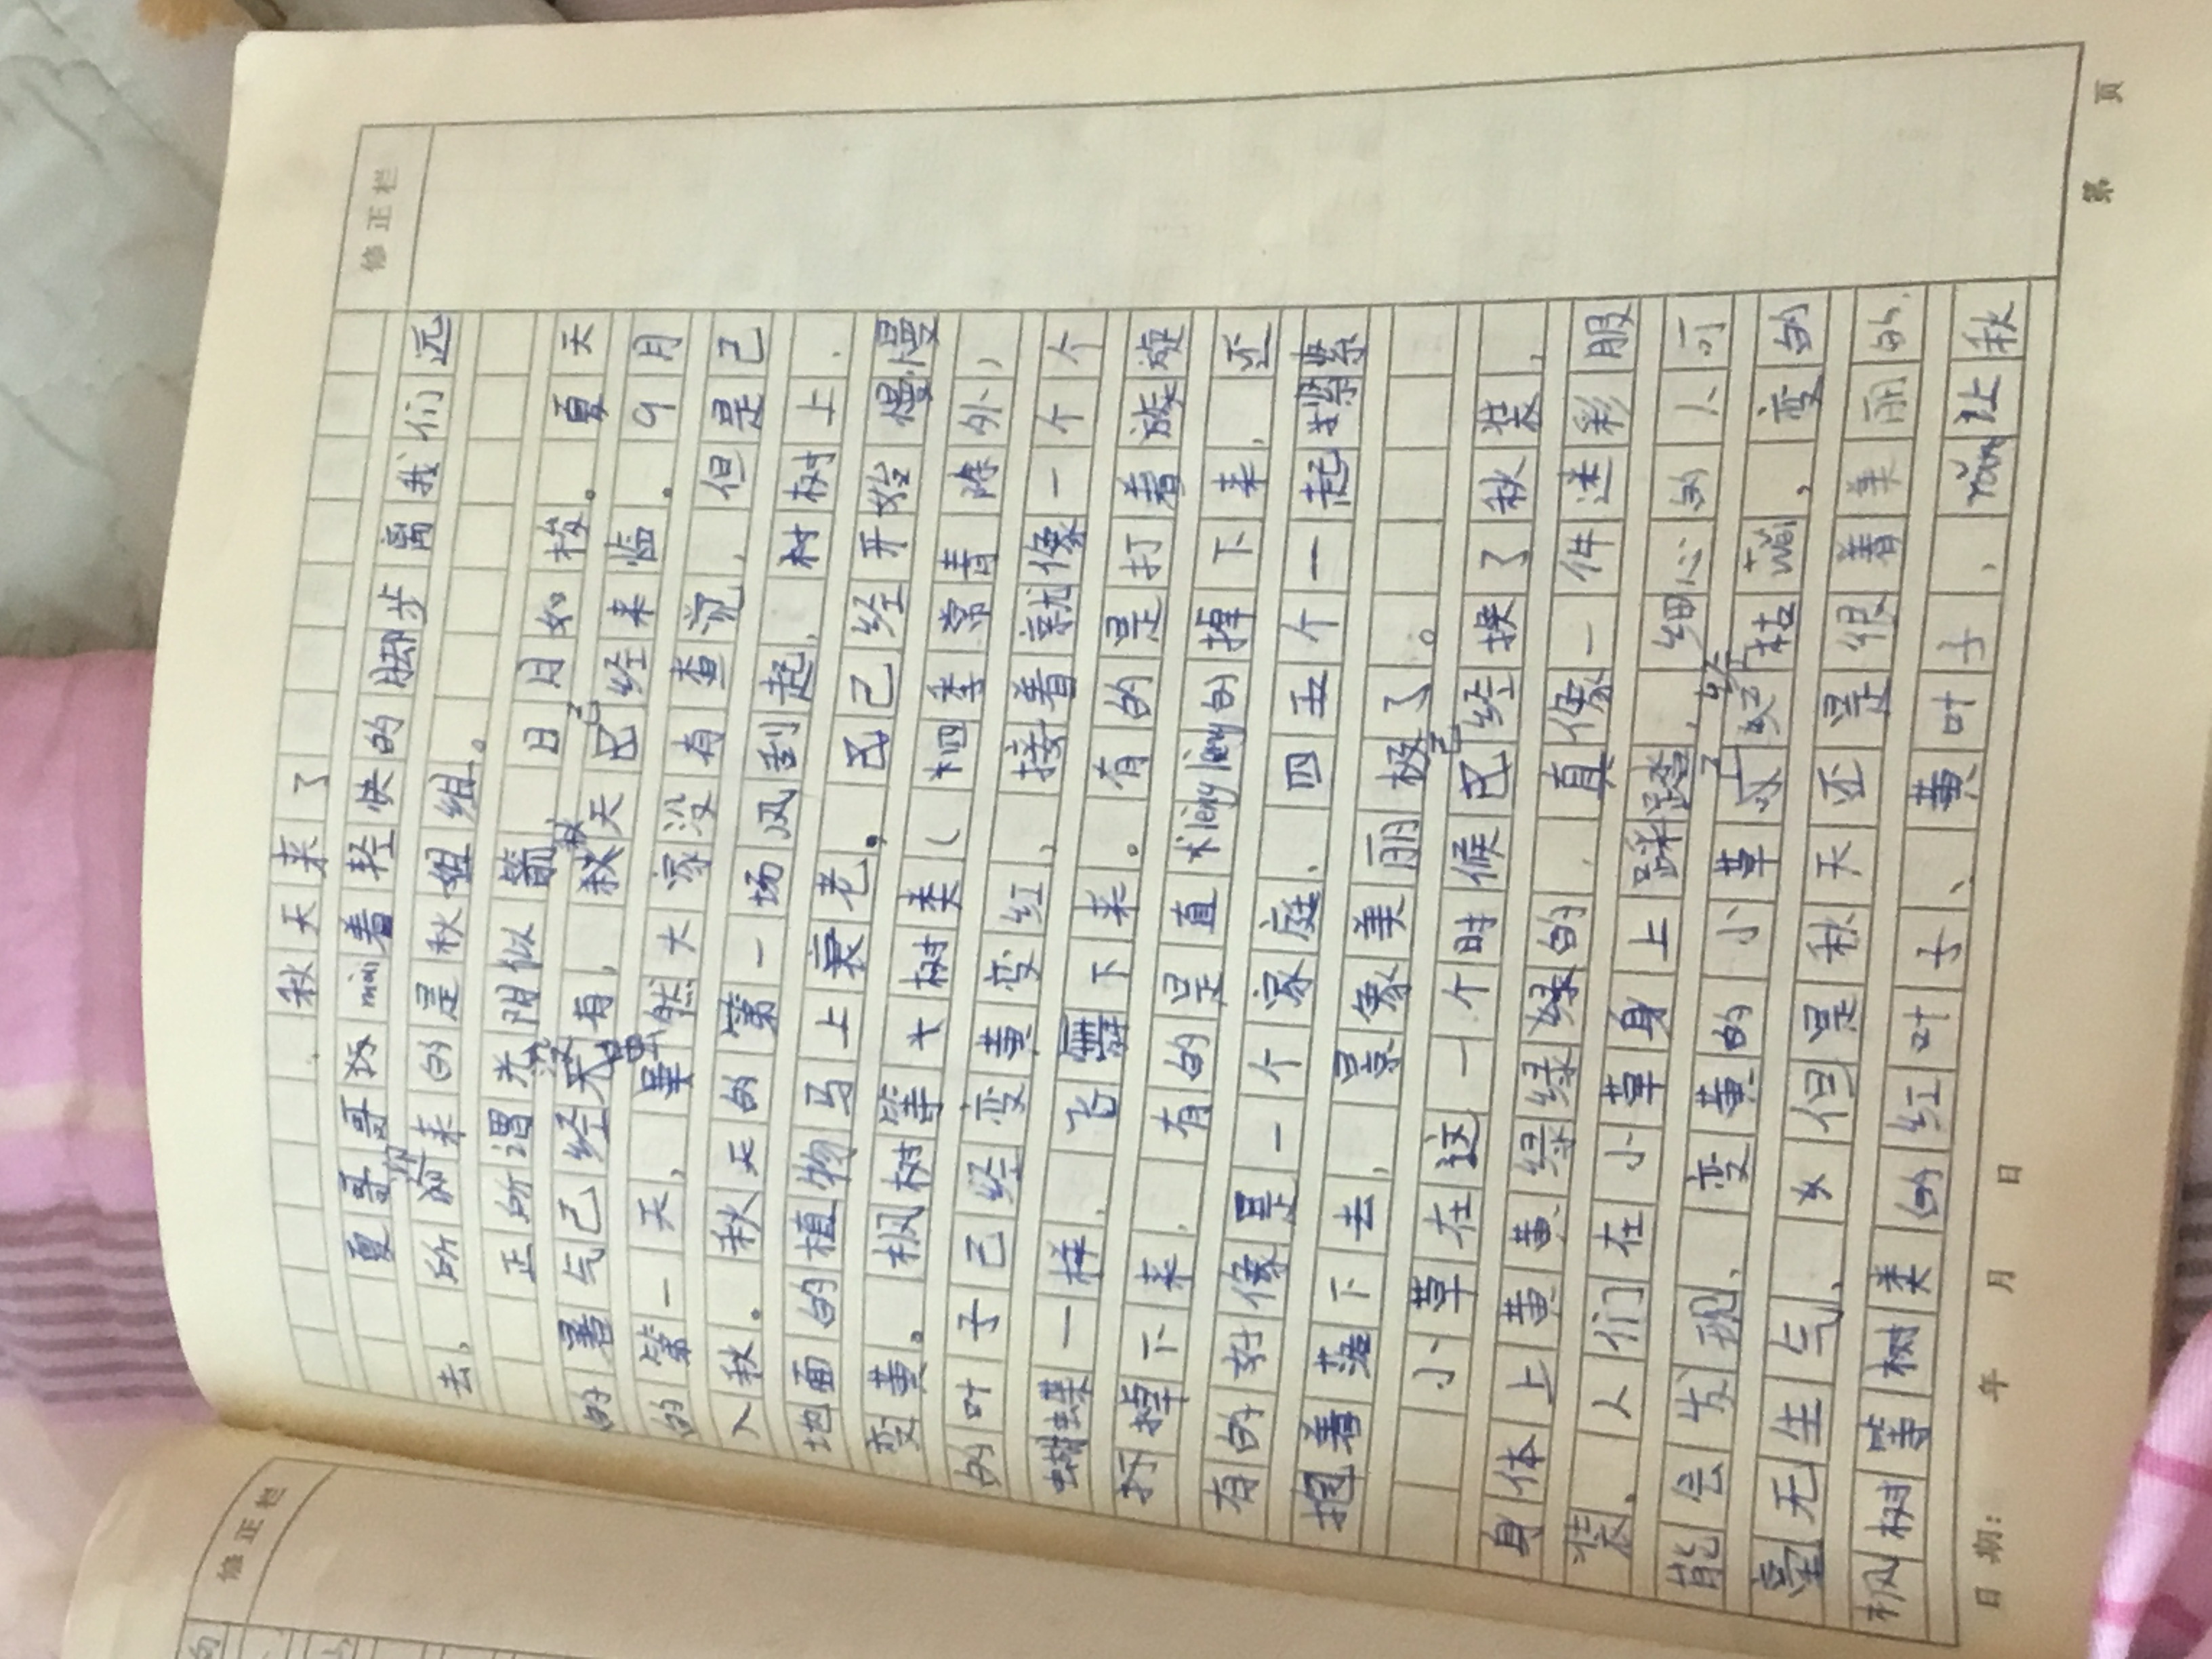 修正栏
秋天来了
夏哥哥迈mài着轻快的脚步离我们远
去，所迎来的是秋姐组。
正所谓光阴似箭，日月如梭。夏天
的暑气已经没有，秋天已经来临。9月
的第一天，虽然大家没有查觉，但是已
入秋。秋天的第一场风刮起，树树上、
地面的植物马上衰老。已经开始慢慢
变黄。枫树等大树类（四季常青除外）
的叶子已经变黄变红、接着就像一个个
蝴蝶一样，飞舞下来。有的是打着旋
掉下来，有的是直leng leng的掉下来，还
有的好像是一个家庭、四五个一起紧紧
抱着落下去，景象美丽极了。
小草在这一个时候已经换了秋装，
身体上黄黄绿绿的，真像一件迷彩服
装，人们在小草身上踩踏，细心的人可
能会发现，变黄的小草枯wěi，变的
毫无生气，但是秋天还是很着美丽的.
枫树等树类的红叶子、黄叶子，ràng让秋
日期： 年 月 日
第 页
修正栏